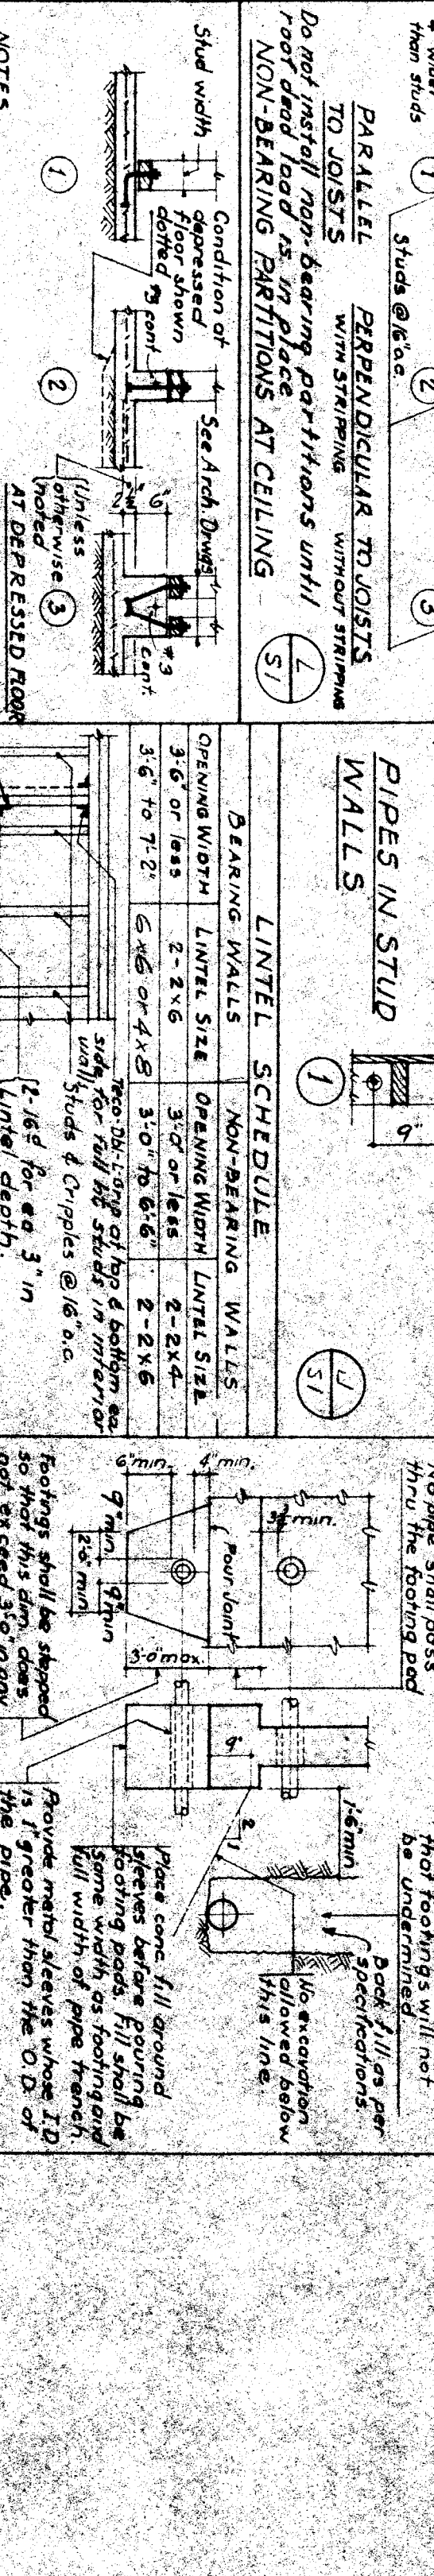 4 wider
than studs
1
Studs @ 16" o.c.
2
3
PARALLEL
TO JOISTS
PERPENDICULAR TO JOISTS
WITH STRIPPING WITHOUT STRIPPING
Do not install non-bearing partitions until
roof dead load is in place
NON-BEARING PARTITIONS AT CEILING
L
S1
Stud width
Condition at
depressed
floor shown
dotted
#3 cont.
See Arch Drwgs
6"
#3
cont.
1
2
Unless
otherwise
noted
3
AT DEPRESSED FLOOR
NOTES
PIPES IN STUD
WALLS
1
9"
J
S1
LINTEL SCHEDULE
BEARING WALLS NON-BEARING WALLS
OPENING WIDTH LINTEL SIZE OPENING WIDTH LINTEL SIZE
3'-6" or less 2-2x6 3'-0" or less 2-2x4
3'-6" to 7'-2" 6x6 or 4x8 3'-0" to 6'-6" 2-2x6
at top & bottom ea
side for full ht studs in interior
wall
Studs & Cripples @ 16" o.c.
2-16d for ea 3" in
Lintel depth.
No pipe shall pass
thru the footing pad
that footings will not
be undermined
Back fill as per
specifications.
1'-6" min
No excavation
allowed below
this line.
min.
Pour Joint
4" min.
6" min.
3'-0" max.
9"
2
1
9" min
9" min
2'-0" min
Place conc. fill around
sleeves before pouring
footing pads. Fill shall be
same width as footing and
full width of pipe trench.
Footings shall be stepped
so that this dim. does
not exceed 3'-0" in any
Provide metal sleeves whose I.D
is 1" greater than the O.D. of
the pipe.